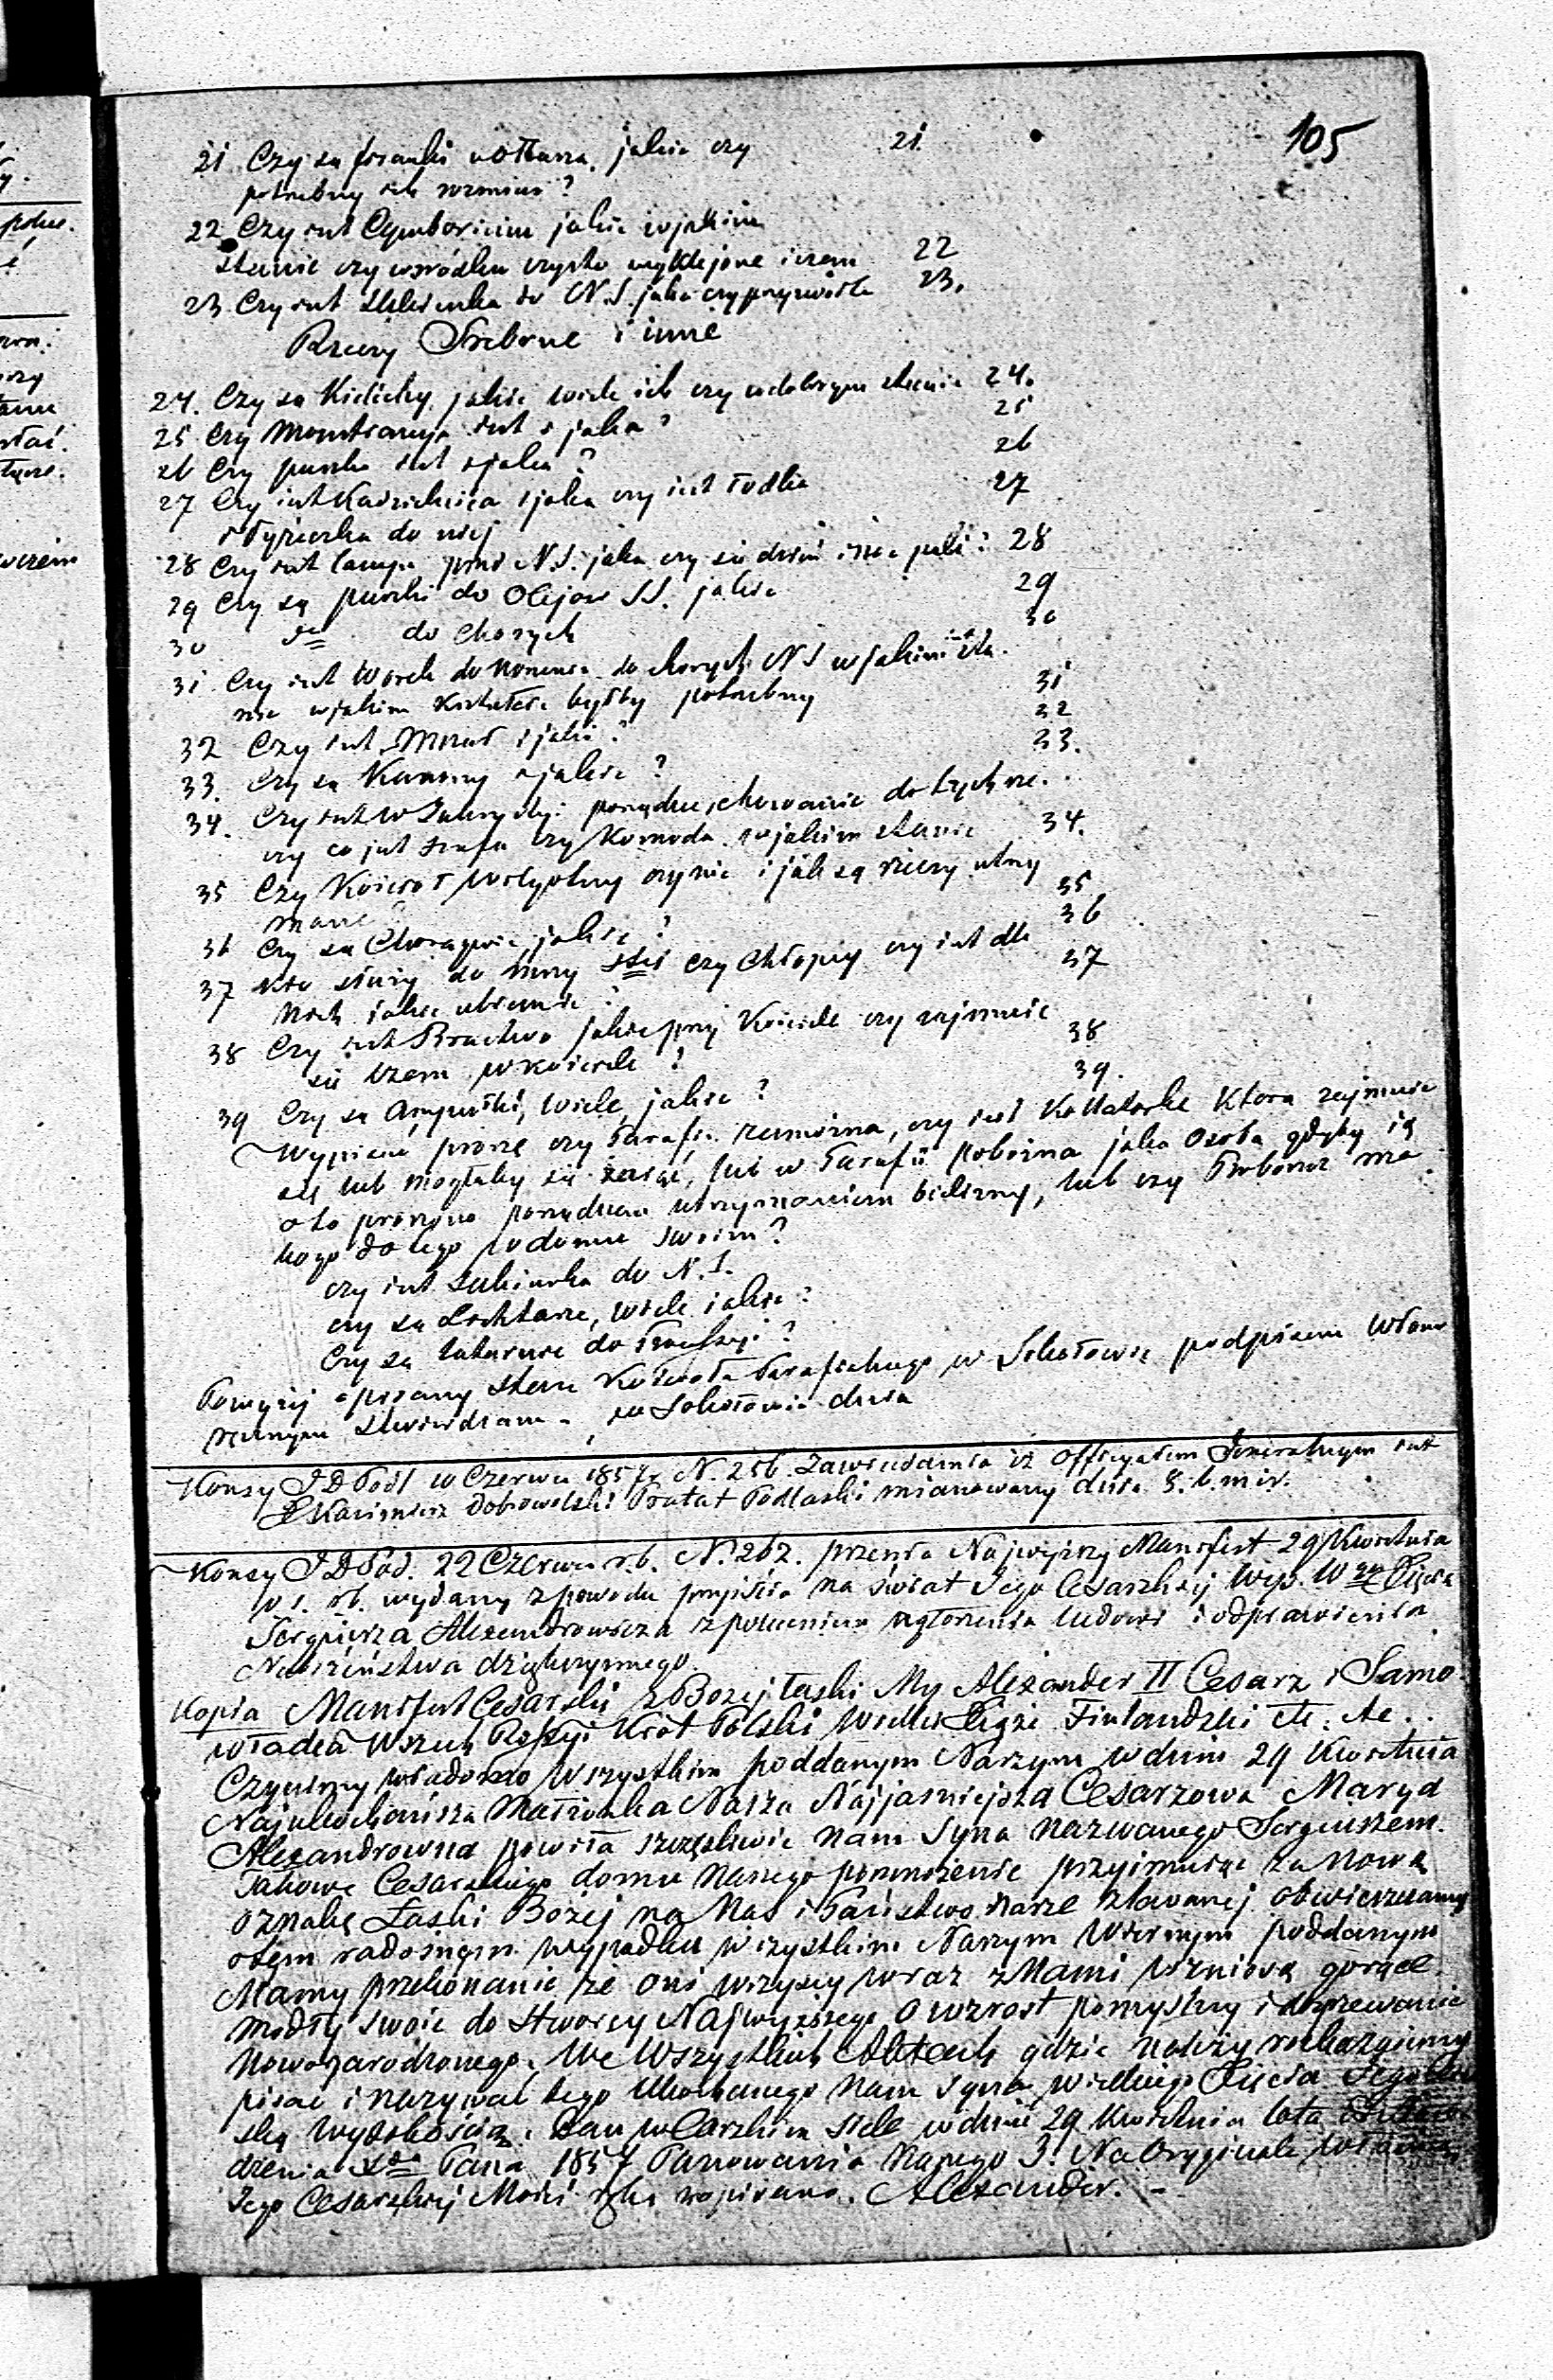 105
21 Czy są firanki u Ołtarza, jakie czy 21
potrzebny ich rozmiar?
22 Czy jest Cymborium jakie w jakim
Stanie czy w środku czysto wyklejone i czem 22
23 Czy jest Sukienka do N.S. jaka czy przyzwoita 23.
Rzeczy Srebrne i inne
24. Czy są Kielichy, jakie wiele ich czy w dobrym stanie 24.
25 Czy Monstrancya jest i jaka? 25
26 Czy puszka jest i jaka? 26
27 Czy jest Kadzielnica i jaka czy jest łódka 27
i łyżeczka do niej
28 Czy jest lampa przed N.S. jaka czy się dzień i noc pali? 28
29 Czy są puszki do Olejow SS. jakie 29
30 do Chorych 30
31 Czy jest Worek do noszenia do chorych N S w jakim sta.
nie w jakim Kształcie byłby potrzebny 31
32 Czy jest Mszał i jaki? 32
33. Czy są Kanony i jakie? 33.
34. Czy jest w Zakrystyi porządne schowanie do tych rze.
czy co jest szafa czy Komoda w jakim stanie 34.
35 Czy Kościoł wilgotny czy nie i jak są rzeczy utrzy
mane 35
36 Czy są Chorągwie, jakie? 36
37 Kto służy do Mszy Stej czy Chłopcy czy jest dla 37
nich jakie ubranie?
38 Czy jest Bractwo jakie przy Kościele czy zajmuie
się czem w kościele? 38
39 Czy są Ampułki, wiele, jakie? 39.
Wypisać proszę czy Parafia zamożna, czy jest Kollatorka Ktora zajmuie
się lub mogłaby się zająć, lub w Parafii pobożna jaka Osoba gdyby ją
oto proszono porządnem utrzymaniem bielizny, lub czy Proboszcz ma
kogo do tego w domu swoim?
czy jest Sukienka do N.S.
czy są Lichtarze, wiele i jakie?
Czy są latarnie do Processyi?
Powyżej opisany stan Kościoła Parafialnego w Sokołowie podpisem własno
ręcznym stwierdzam. w Sokołowie dnia
Konsy J D Podl w Czerwcu 1857 r N. 256. Zawiadamia iż Officyałem Jeneralnym jest
X Kazimierz Dobrowolski Prałat Podlaski mianowany dnia 3. b. m i r.
Konsy J D Pod. 22 Czerwca r.b. N. 262. przesła Najwyższy Manifest 29 Kwietnia
v. s. rb. wydany z powodu przyjścia na świat Jego Cesarskiej Wys. W go Xięcia
Sergiusza Alexandrowicza z poleceniem ogłoszenia ludowi i odprawienia
Nabożeństwa dziękczynnego.
Kopia Manifest Cesarski z Bożej łaski My Alexander II Cesarz i Samo
władca Wszech Rossyi Król Polski Wielki Xiąże Finlandzki etc. etc..
Czynimy wiadomo wszystkim poddanym Naszym w dniu 29 Kwietnia
Najukochańsza Małżonka Nasza Najjaśniejsza Cesarzowa Marya
Alexandrowna powiła szczęśliwie nam Syna nazwanego Sergiuszem.
Takowe Cesarskiego domu Naszego pomnożenie przyjmując za nową
oznakę Łaski Bożej na Nas i Państwo Nasze zlewanej obwieszczamy
otem radośnym wypadku wszystkim Naszym wiernym poddanym
Mamy przekonanie że oni wszyscy wraz z Nami wzniosą gorące
modły swoie do Stworcy Najwyższego o wzrost pomyślny i dojrzewanie
Nowonarodzonego. We Wszystkich Aktach gdzie należy rozkazujemy
pisać i nazywać tego Ukochanego Nam Syna Wielkiego Xięcia Jego Cesar
ską Wysokością. Dan w Carskim Siele w dniu 29 Kwietnia lata
dzenia Pana 1857 Panowania Naszego 3. Na Oryginale własną
Jego Cesarskiej Mości ręką napisano. Alexander.